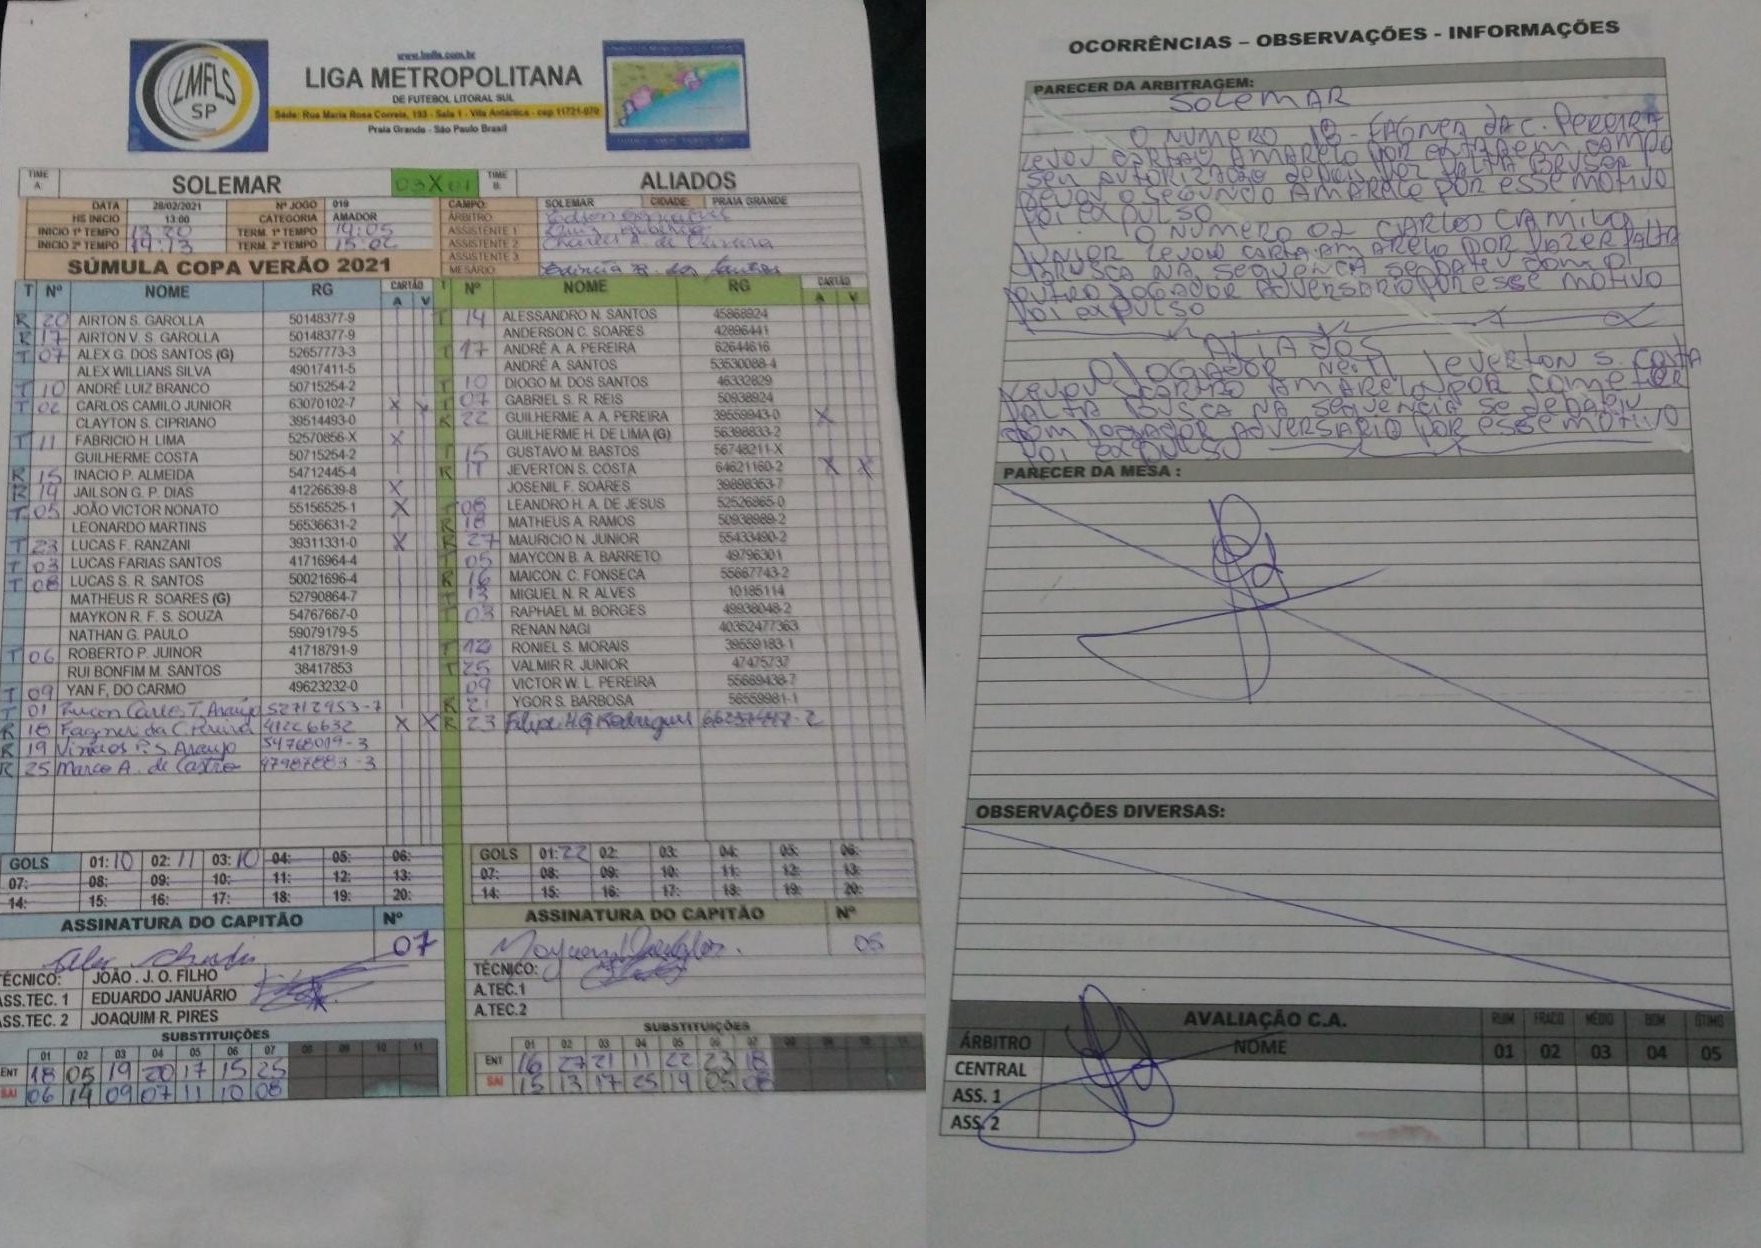 www.lmfls.com.br
LIGA METROPOLITANA
DE FUTEBOL LITORAL SUL
Sede: Rua Maria Rosa Correia, 193 - Sala 1 - Vila Antártica - cep 11721-070
Praia Grande - São Paulo Brasil
LMFLS
SP
TIME A: SOLEMAR 03X01 TIME B: ALIADOS
DATA 28/02/2021 Nº JOGO 019 CAMPO: SOLEMAR CIDADE: PRAIA GRANDE
HS INICIO 13:00 CATEGORIA AMADOR ÁRBITRO
INICIO 1º TEMPO 13:20 TERM. 1º TEMPO 14:05 ASSISTENTE 1
INICIO 2º TEMPO 14:13 TERM. 2º TEMPO 15:02 ASSISTENTE 2 Charles A. de Oliveira
ASSISTENTE 3
SÚMULA COPA VERÃO 2021 MESÁRIO dos Santos
T Nº NOME RG CARTÃO A V T Nº NOME RG CARTÃO A V
R 20 AIRTON S. GAROLLA 50148377-9 T 14 ALESSANDRO N. SANTOS 45868924
R 17 AIRTON V. S. GAROLLA 50148377-9 ANDERSON C. SOARES 42896441
T 07 ALEX G. DOS SANTOS (G) 52657773-3 T 17 ANDRÉ A. A. PEREIRA 62644616
ALEX WILLIANS SILVA 49017411-5 ANDRÉ A. SANTOS 53530088-4
T 10 ANDRÉ LUIZ BRANCO 50715254-2 T 10 DIOGO M. DOS SANTOS 46332829
T 02 CARLOS CAMILO JUNIOR 63070102-7 X X T 07 GABRIEL S. R. REIS 50938924
CLAYTON S. CIPRIANO 39514493-0 R 22 GUILHERME A. A. PEREIRA 39559943-0 X
T 11 FABRICIO H. LIMA 52570856-X X GUILHERME H. DE LIMA (G) 56398833-2
GUILHERME COSTA 50715254-2 T 15 GUSTAVO M. BASTOS 56748211-X
R 15 INACIO P. ALMEIDA 54712445-4 R 11 JEVERTON S. COSTA 64621160-2 X X
R 14 JAILSON G. P. DIAS 41226639-8 X JOSENIL F. SOARES 39898363-7
T 05 JOÃO VICTOR NONATO 55156525-1 X T 08 LEANDRO H. A. DE JESUS 52526865-0
LEONARDO MARTINS 56536631-2 R 18 MATHEUS A. RAMOS 50938989-2
T 23 LUCAS F. RANZANI 39311331-0 X R 27 MAURICIO N. JUNIOR 55433490-2
T 03 LUCAS FARIAS SANTOS 41716964-4 T 05 MAYCON B. A. BARRETO 49796301
T 08 LUCAS S. R. SANTOS 50021696-4 R 16 MAICON. C. FONSECA 55667743-2
MATHEUS R. SOARES (G) 52790864-7 T 13 MIGUEL N. R. ALVES 10185114
MAYKON R. F. S. SOUZA 54767667-0 T 03 RAPHAEL M. BORGES 49938048-2
NATHAN G. PAULO 59079179-5 RENAN NAGI 40352477363
T 06 ROBERTO P. JUINOR 41718791-9 T 12 RONIEL S. MORAIS 39559183-1
RUI BONFIM M. SANTOS 38417853 T 25 VALMIR R. JUNIOR 47475737
T 09 YAN F, DO CARMO 49623232-0 09 VICTOR W. L. PEREIRA 55669438-7
T 01 Carlos T. Araujo 52712953-7 R 21 YGOR S. BARBOSA 56559981-1
R 18 Fagner da C. Pereira 41226632 X X R 23 Filipe H G Rodrigues
R 19 Vinicios P. S Araujo 54768019-3
R 25 Marco A. de Castro 47987883-3
GOLS 01: 10 02: 11 03: 10 04: 05: 06: GOLS 01: 22 02: 03: 04: 05: 06:
07: 08: 09: 10: 11: 12: 13: 07: 08: 09: 10: 11: 12: 13:
14: 15: 16: 17: 18: 19: 20: 14: 15: 16: 17: 18: 19: 20:
ASSINATURA DO CAPITÃO Nº ASSINATURA DO CAPITÃO Nº
07 05
TÉCNICO: JOÃO . J. O. FILHO TÉCNICO:
ASS.TEC. 1 EDUARDO JANUÁRIO A.TEC.1
ASS.TEC. 2 JOAQUIM R. PIRES A.TEC.2
SUBSTITUIÇÕES SUBSTITUIÇÕES
01 02 03 04 05 06 07 08 09 10 11 01 02 03 04 05 06 07 08 09 10 11
ENT 18 05 19 20 17 15 25 ENT 16 27 21 11 22 23 18
SAI 06 14 09 07 11 10 08 SAI 15 13 17 25 14 05 08
OCORRÊNCIAS – OBSERVAÇÕES - INFORMAÇÕES
PARECER DA ARBITRAGEM:
SOLEMAR
O NUMERO 18 - FAGNER DA C. PEREIRA
LEVOU CARTAO AMARELO POR ENTRAR EM CAMPO
SEM AUTORIZAÇÃO DEPOIS FALTA BRUSCA
LEVOU O SEGUNDO AMARELO POR ESSE MOTIVO
FOI EXPULSO
O NUMERO 02 CARLOS CAMILO
JUNIOR LEVOU CARTA AMARELO POR FAZER FALTA
BRUSCA NA SEQUENCIA SE BATEU COM O
OUTRO JOGADOR ADVERSARIO POR ESSE MOTIVO
FOI EXPULSO
ALIADOS
O JOGADOR Nº 11 JEVERTON S. COSTA
LEVOU CARTAO AMARELO POR COMETER
FALTA BUSCA NA SEQUENCIA SE DEBATEU
COM JOGADOR ADVERSARIO POR ESSE MOTIVO
FOI EXPULSO
PARECER DA MESA :
OBSERVAÇÕES DIVERSAS:
AVALIAÇÃO C.A. RUIM FRACO MÉDIO BOM ÓTIMO
ÁRBITRO NOME 01 02 03 04 05
CENTRAL
ASS. 1
ASS. 2